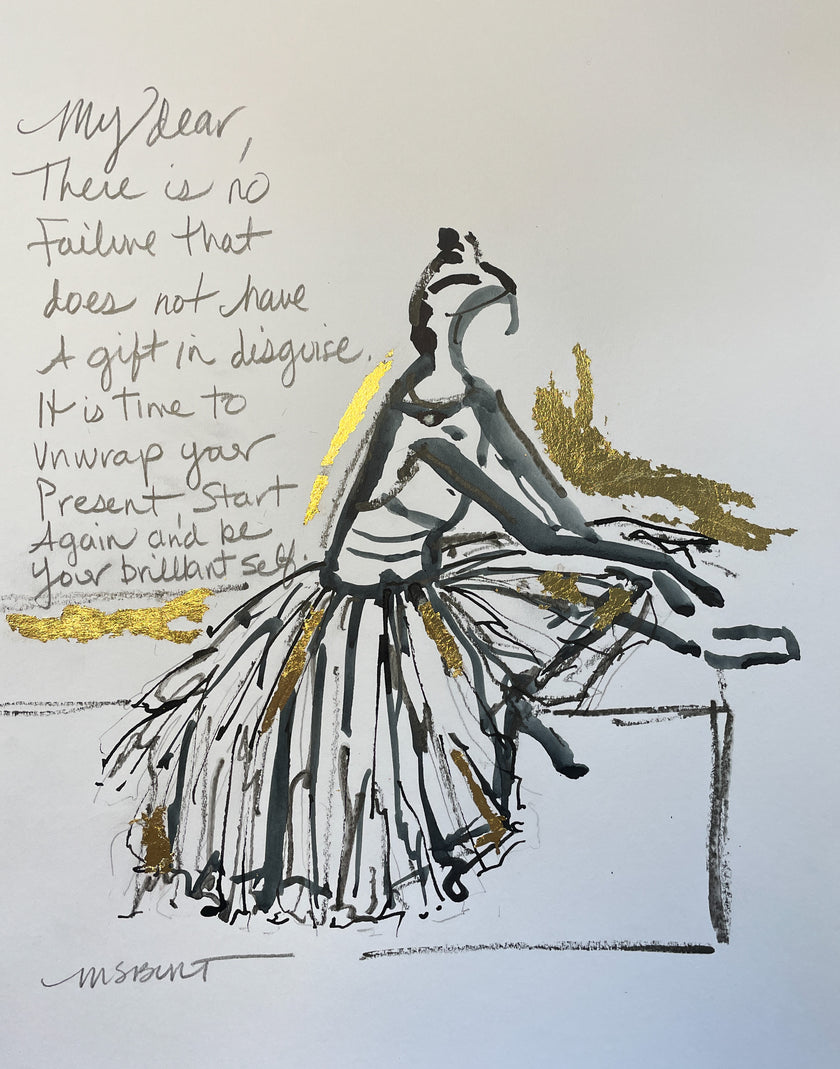 My Dear,
There is no
Failure that
does not have
A gift in disguise.
It is Time to
Unwrap your
Present Start
Again and be
your brilliant self.